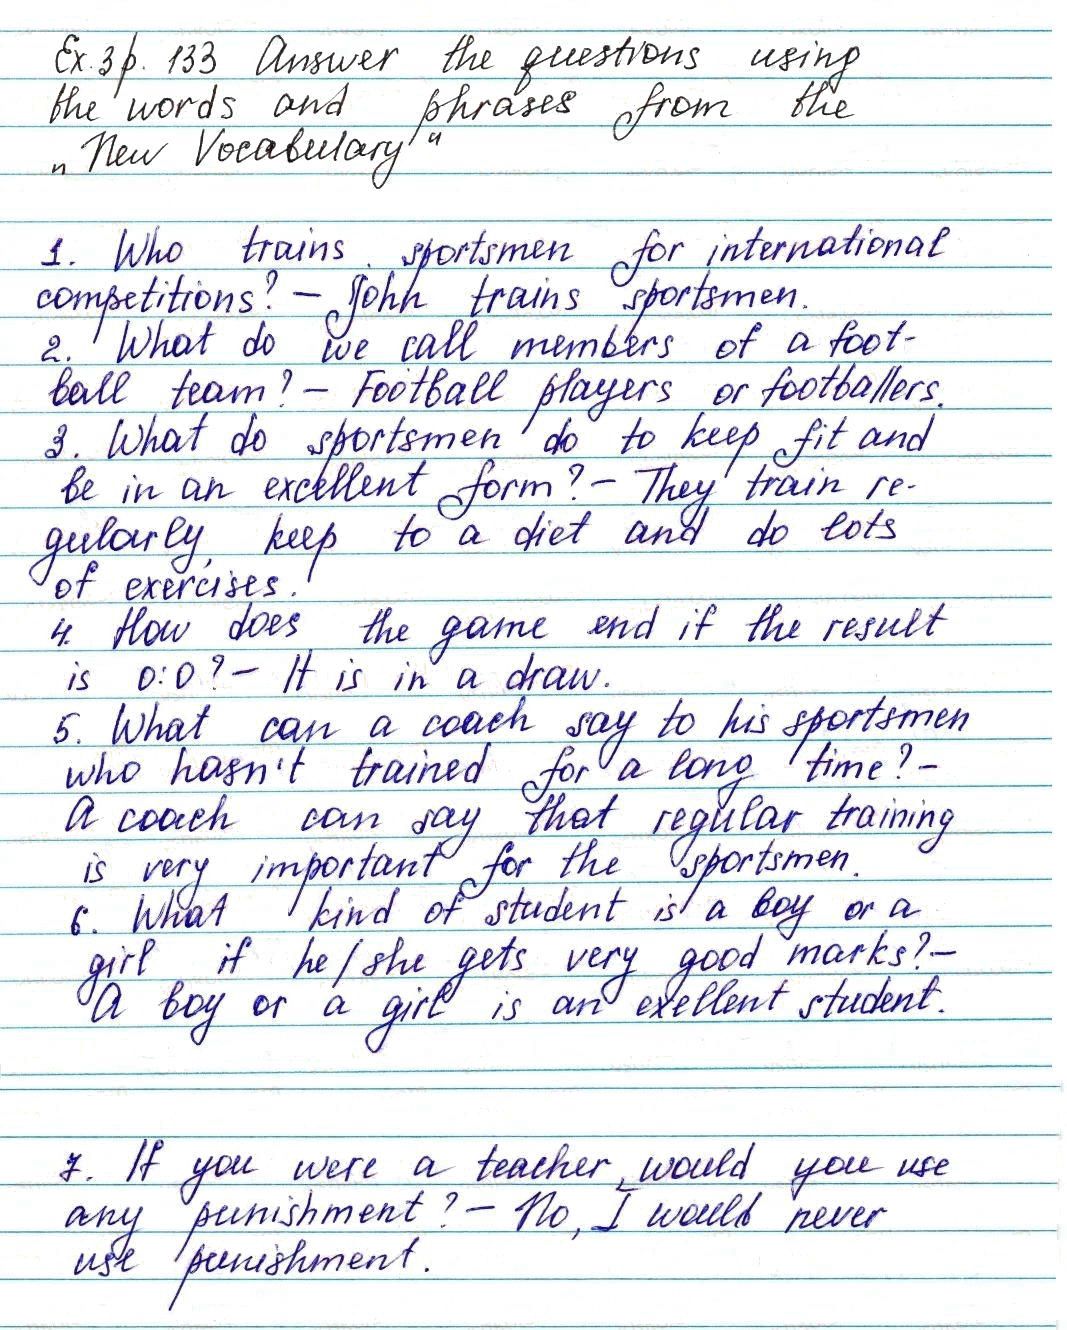 Ex. 3 p. 133 Answer the questions using
the words and phrases from the
„New Vocabulary"
1. Who trains sportsmen for international
competitions? – John trains sportsmen.
2. What do we call members of a foot-
ball team? – Football players or footballers.
3. What do sportsmen do to keep fit and
be in an excellent form? – They train re-
gularly, keep to a diet and do lots
of exercises.
4. How does the game end if the result
is 0:0? – It is in a draw.
5. What can a coach say to his sportsmen
who hasn't trained for a long time? –
A coach can say that regular training
is very important for the sportsmen.
6. What kind of student is a boy or a
girl if he/she gets very good marks? –
A boy or a girl is an exellent student.
7. If you were a teacher, would you use
any punishment? – No, I would never
use punishment.